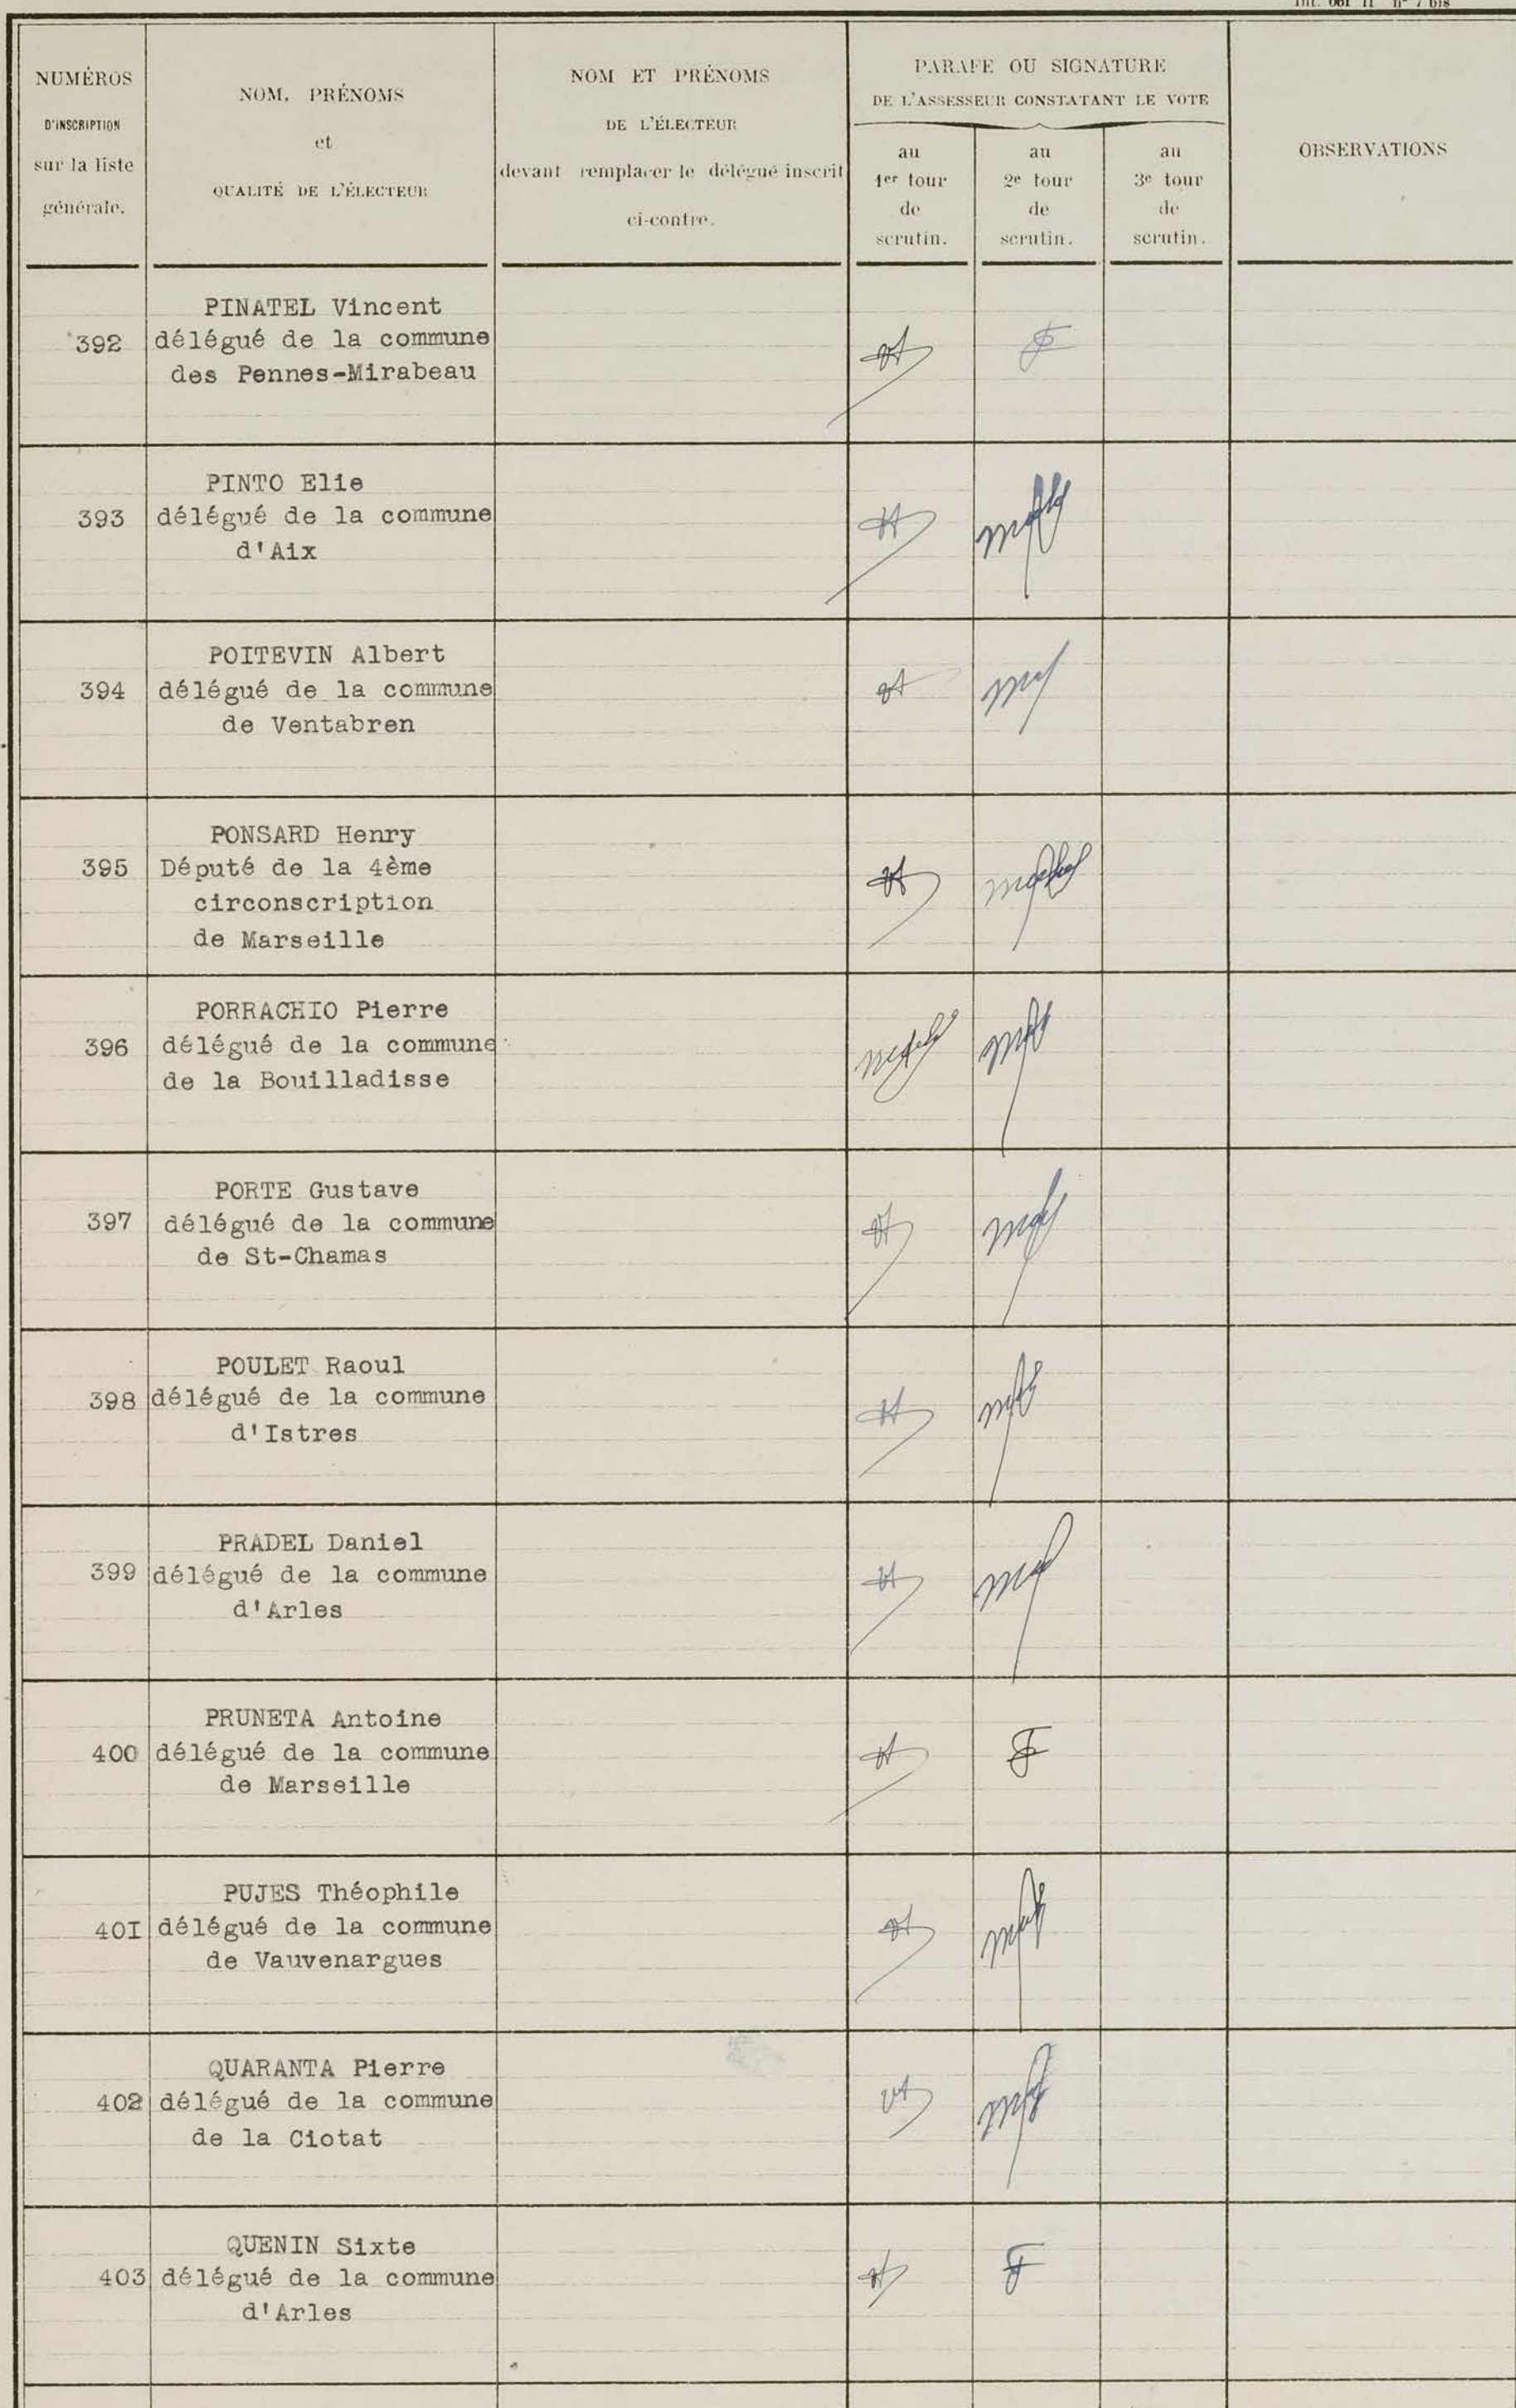 NUMÉROS
D'INSCRIPTION
sur la liste
générale.
NOM, PRÉNOMS
et
QUALITÉ DE L'ÉLECTEUR
NOM ET PRÉNOMS
DE L'ÉLECTEUR
devant remplacer le délégué inscrit
ci-contre.
PARAFE OU SIGNATURE
DE L'ASSESSEUR CONSTATANT LE VOTE
au
1er tour
de
scrutin.
au
2e tour
de
scrutin.
au
3e tour
de
scrutin.
OBSERVATIONS
PINATEL Vincent
392 délégué de la commune
des Pennes-Mirabeau
PINTO Elie
393 délégué de la commune
d'Aix
POITEVIN Albert
394 délégué de la commune
de Ventabren
PONSARD Henry
395 Député de la 4ème
circonscription
de Marseille
PORRACHIO Pierre
396 délégué de la commune
de la Bouilladisse
PORTE Gustave
397 délégué de la commune
de St-Chamas
POULET Raoul
398 délégué de la commune
d'Istres
PRADEL Daniel
399 délégué de la commune
d'Arles
PRUNETA Antoine
400 délégué de la commune
de Marseille
PUJES Théophile
40I délégué de la commune
de Vauvenargues
QUARANTA Pierre
402 délégué de la commune
de la Ciotat
QUENIN Sixte
403 délégué de la commune
d'Arles